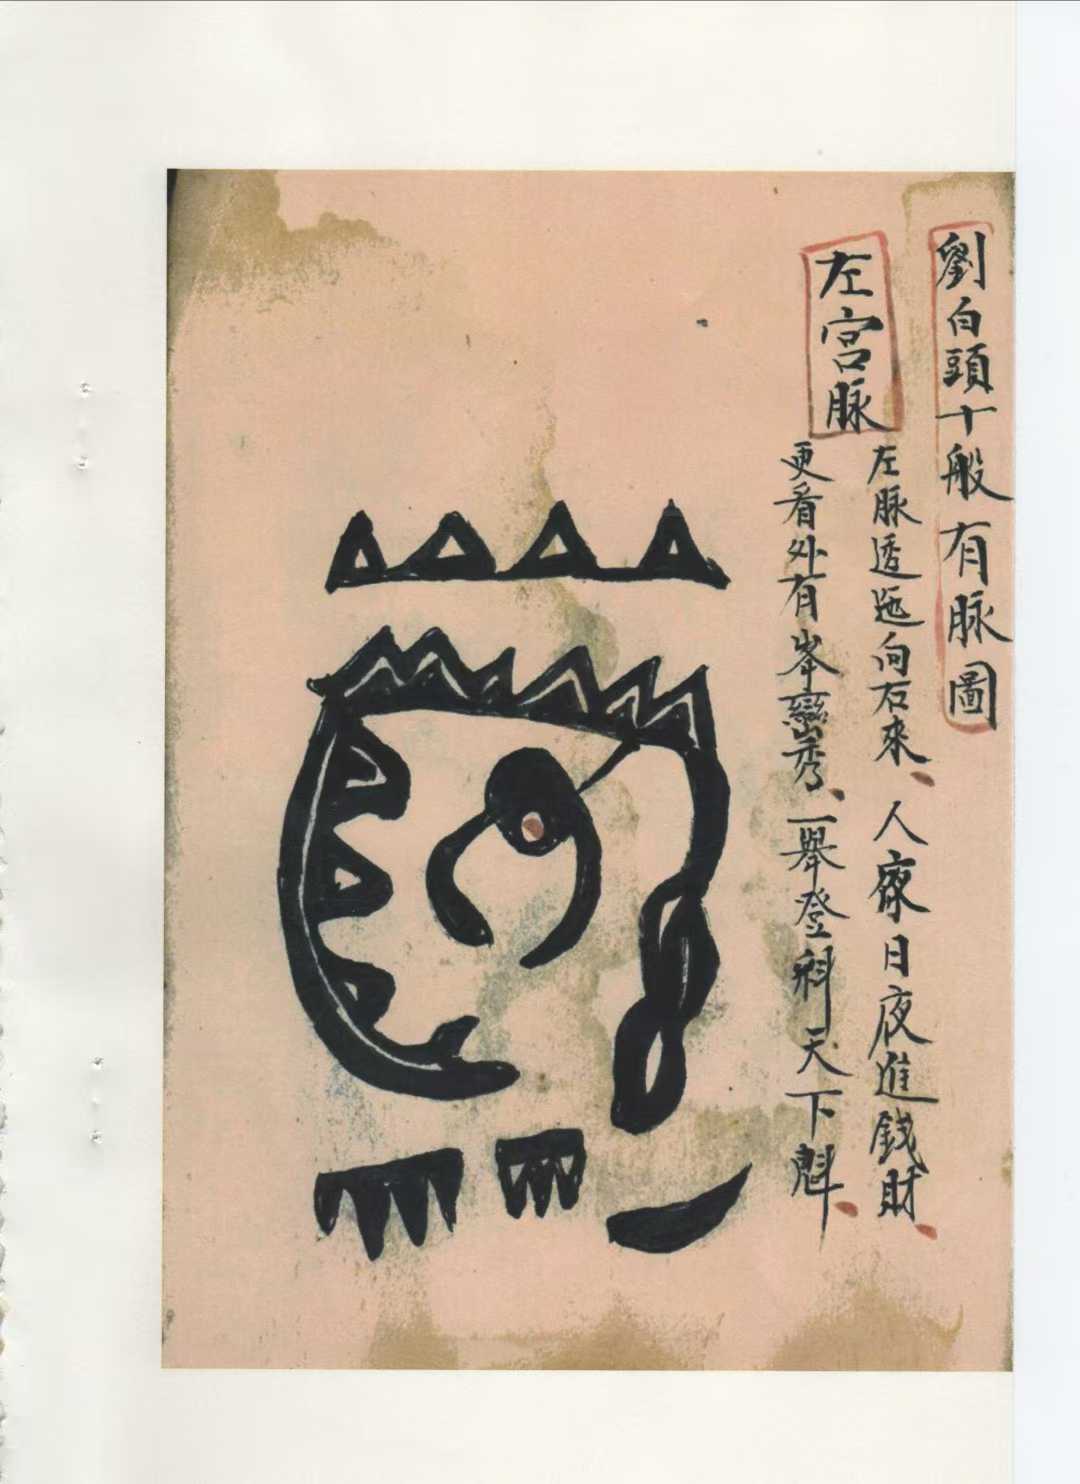 劉白頭十般有脉圖
左宮脉
左脉透迤向右來、人日夜進錢財、
更看外有峯巒秀、一舉登科天下魁、